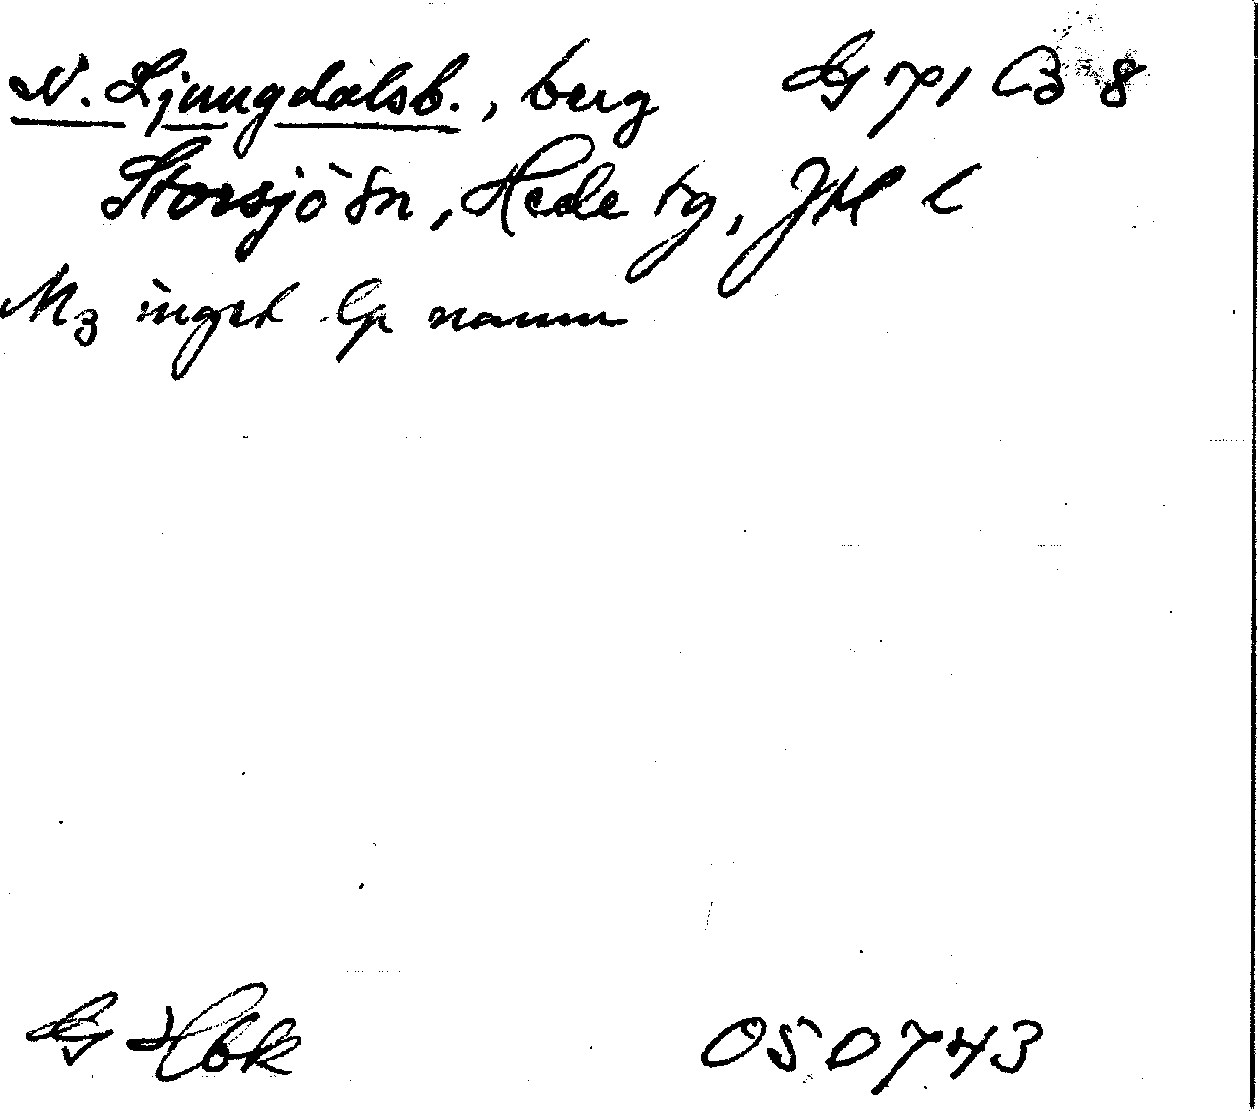 N. Ljungdalsb., berg G 71 B 8
Storsjö sn, Hede tg, Jtl l
Mz inget lp namn
G Hbk 050743